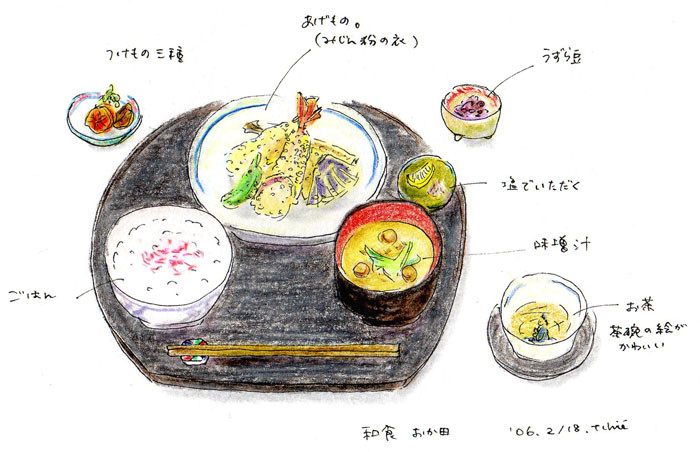 あげもの。
(みじん粉の衣)
つけもの三種
うずら豆
塩でいただく
味噌汁
ごはん
お茶
茶碗の絵が
かわいい
和食 おか田 '06. 2/18. tchié